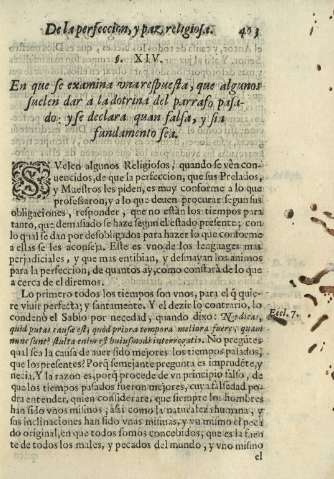 De la perfeccion, y paz religiosa. 403
§. XIV.
En que se examina vna respuesta, que algunos
suelen dar a la dotrina del parrafo pasa-
do: y se declara quan falsa, y sin
fundamento sea.
SVelen algunos Religiosos, quando se vèn con-
uencidos, de que la perfeccion, que sus Prelados,
y Maestros les piden, es muy conforme a lo que
professaron, y a lo que deuen procurar segun sus
obligaciones, responder, que no están los tiempos para
tanto, que demasiado se haze segun el estado presente; con
lo qual se dan por desobligados para hazer lo que conforme
a ellas se les aconseja. Este es vno de los lenguages mas
perjudiciales, y que mas entibian, y desmayan los animos
para la perfeccion, de quantos ay, como constarà de lo que
a cerca de el diremos.
Lo primero todos los tiempos son vnos, para el q̃ quie-
re viuir perfecta, y santamente. Y el dezir lo contrario, lo
condenò el Sabio por necedad, quando dixo: Ne dicas, Eccl. 7.
quid putas causæ est, quòd priora tempora meliora fuere, quam
nunc sunt? stulta enim est huiuscemodi interrogatio. No preguntes
qual sea la causa de auer sido mejores los tiempos passados,
que los presentes? Porq̃ semejante pregunta es imprudẽte, y
necia. Y la razon es, porq̃ procede de vn principio falso, de
que los tiempos passados fueron mejores, cuya falsedad po-
drà entender, quien considerare, que siempre los hombres
han sido vnos mismos; assi como la naturaleza humana, y
sus inclinaciones han sido vnas mismas, y vn mismo el peca
do original, en que todos somos concebidos, que es la fuen
te de todos los males, y pecados del mundo, y vno mismo
el